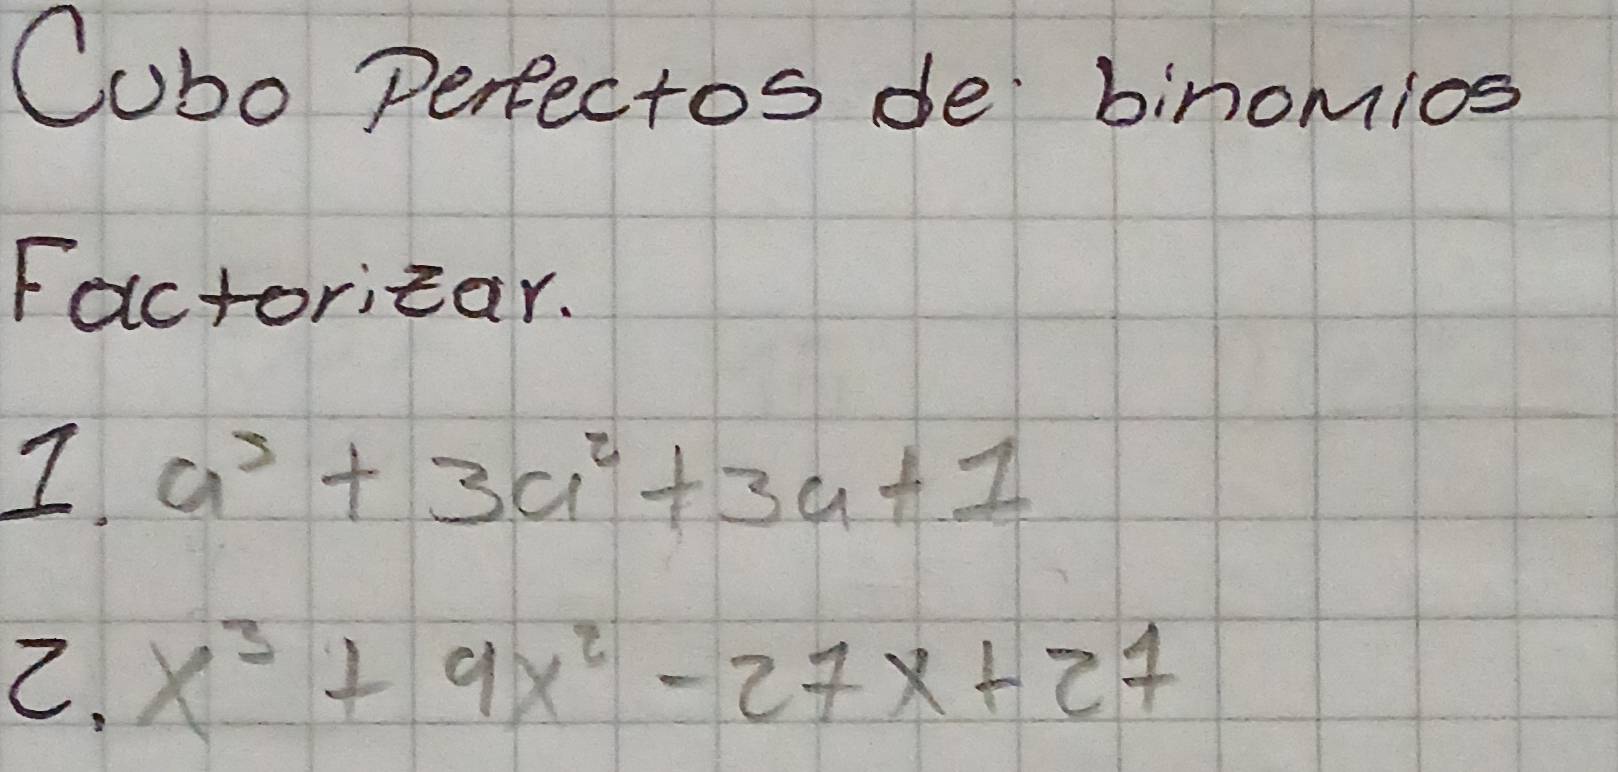 Cubo Perfectos de binomios
Factorizar.
1. a³ + 3a² + 3a + 1
2. x³ + 9x² - 27x + 27